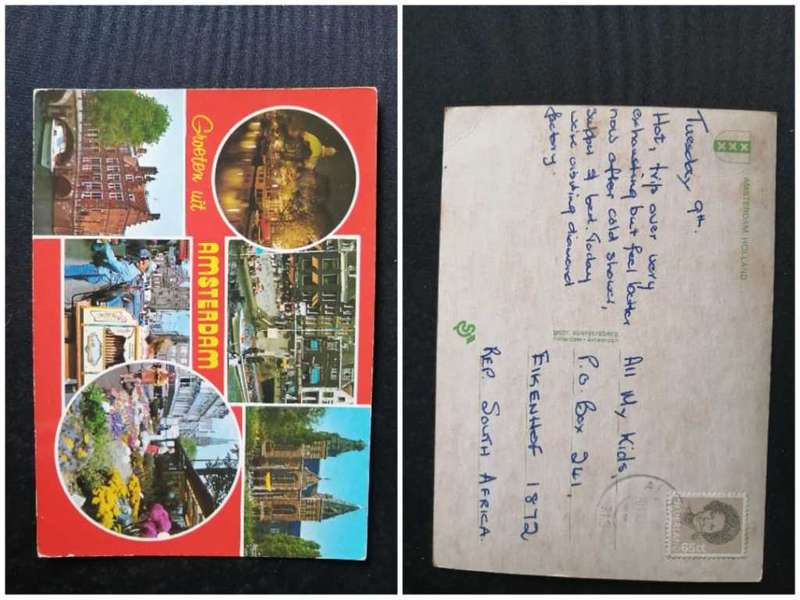 Groeten uit
AMSTERDAM
AMSTERDAM HOLLAND
Tuesday 9th.
Hot, trip over very
exhausting but feel better
now after cold shower,
supper & bed. Today
we're visiting diamond
factory.
All My Kids,
P.O. Box 241,
EIKENHOF 1872
REP. SOUTH AFRICA.
65ct